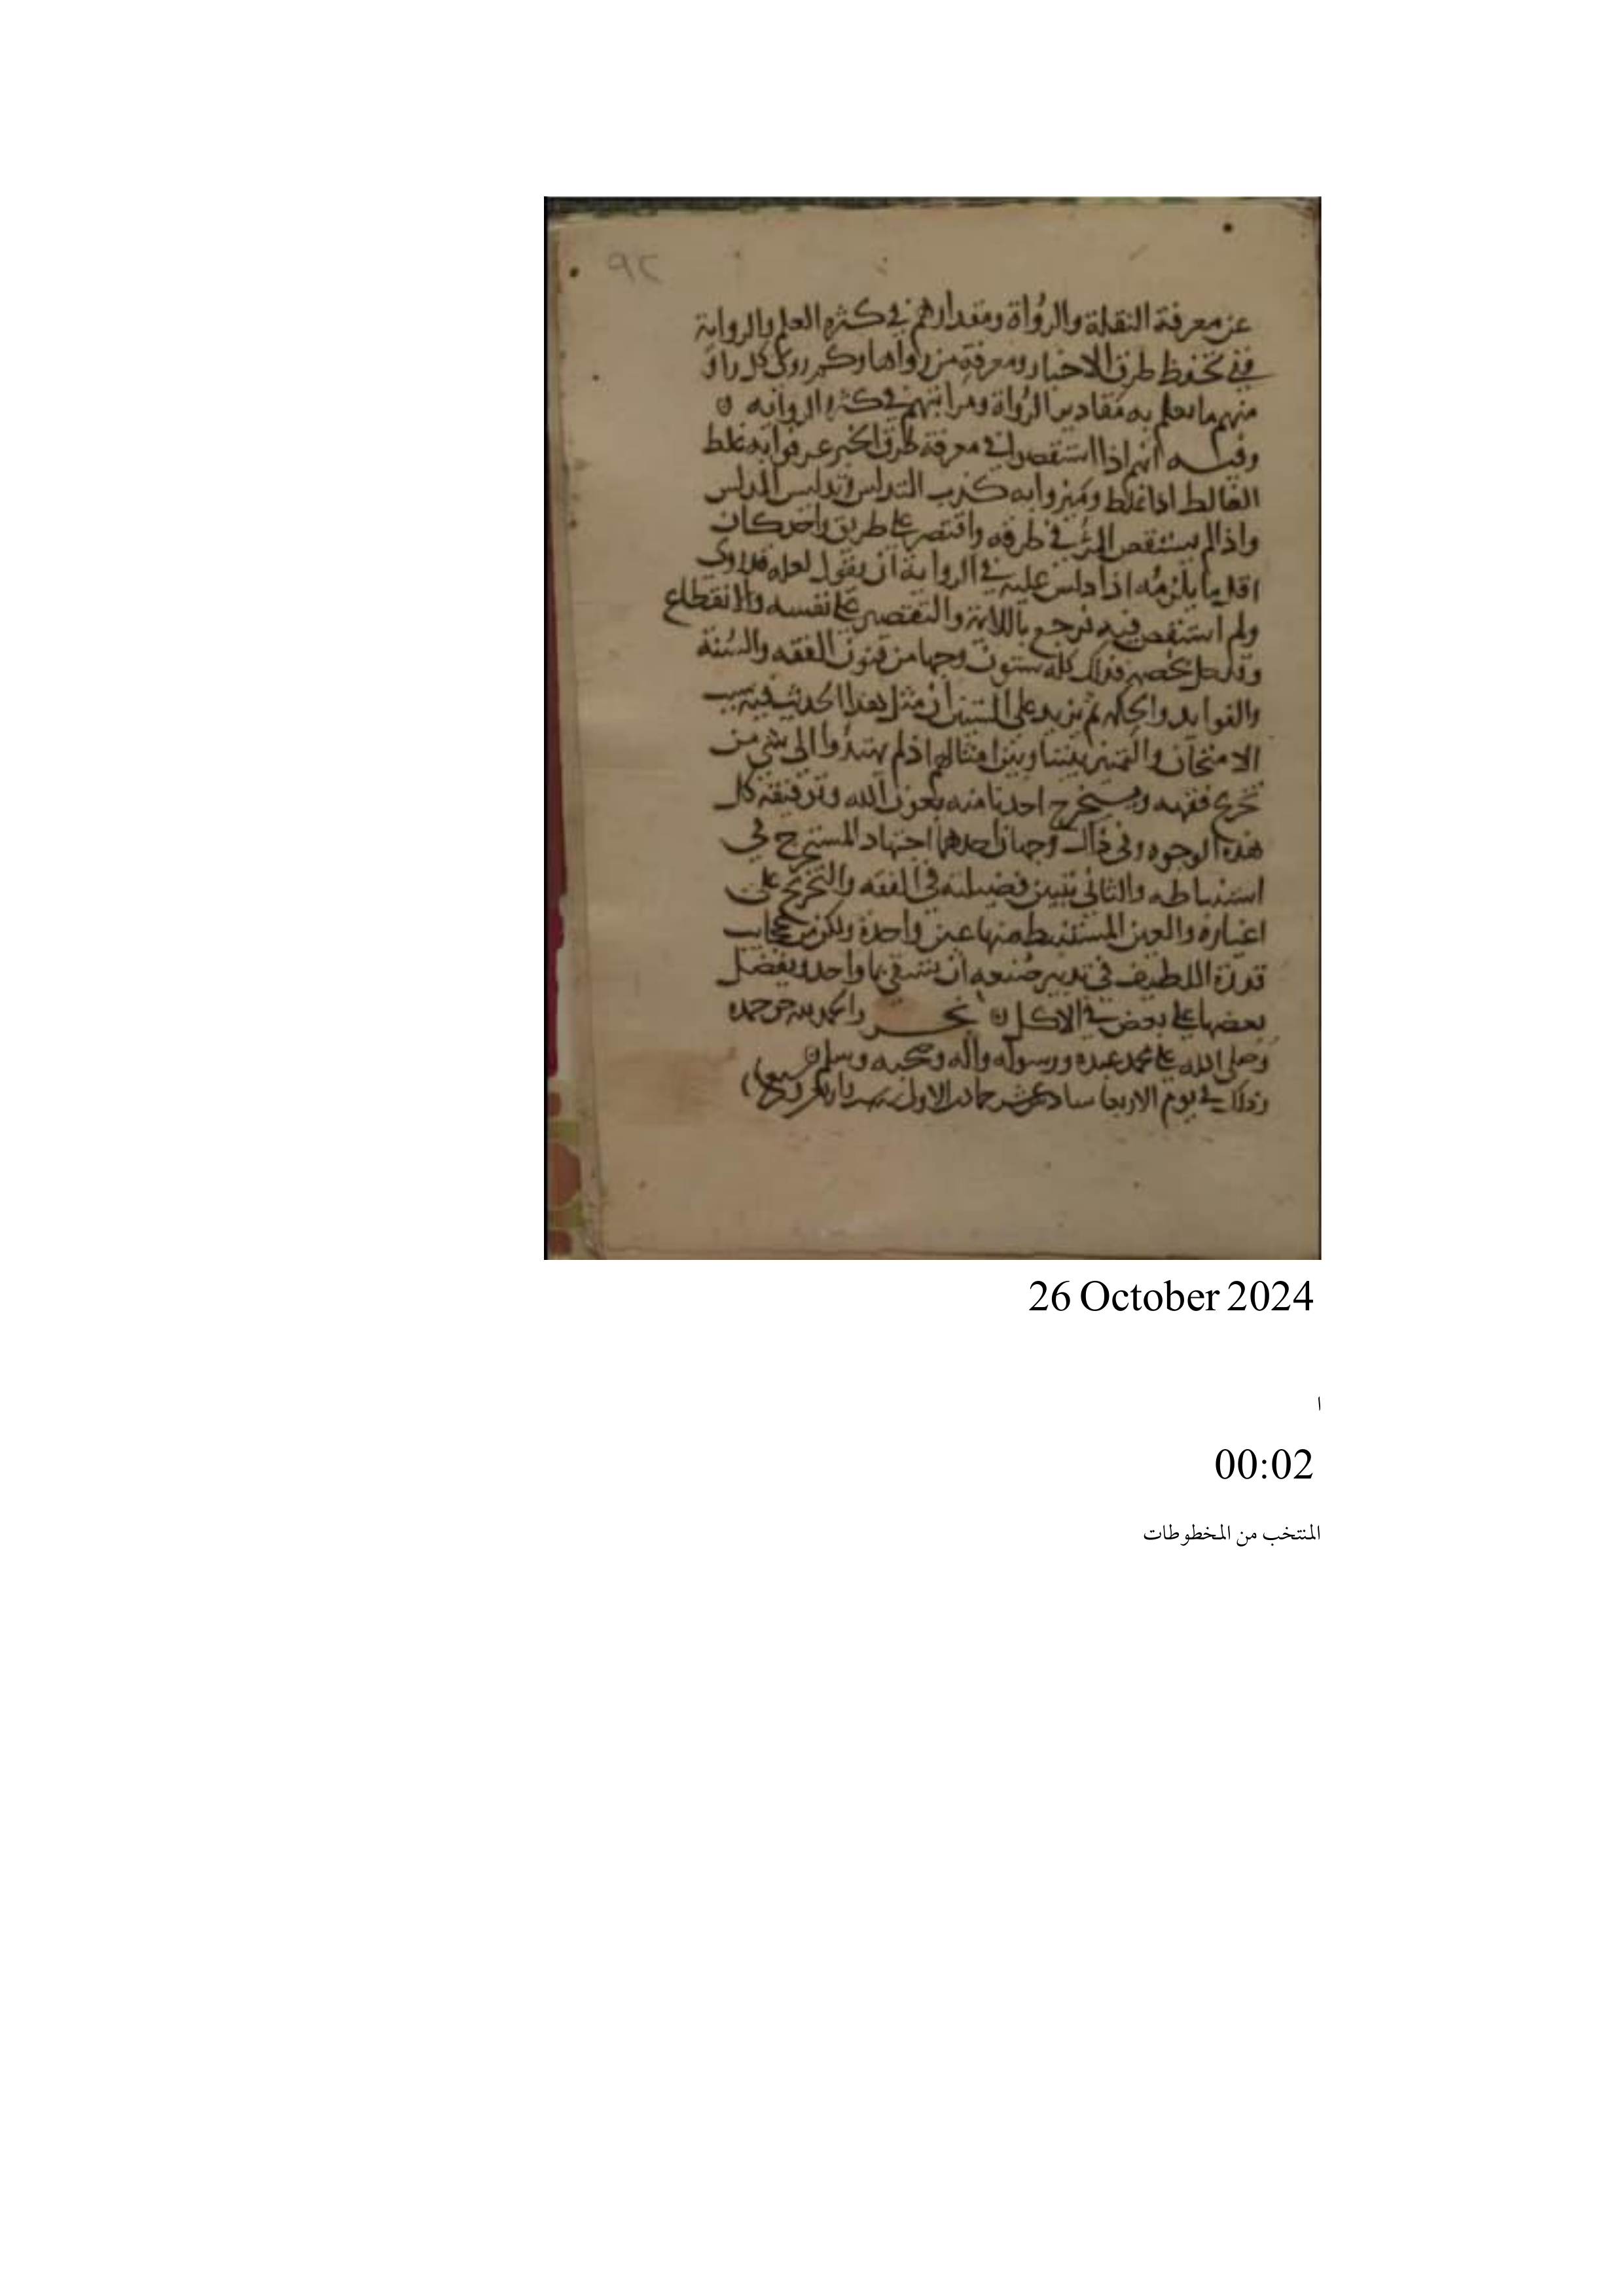 ٩٢
عن معرفة النقلة والرواة ومقدارهم في كثرة العلم والرواية
ففي تحفظ طرق الاخبار ومعرفة من رواها وكم روى كل راو
منهم ما يعلم به مقادير الرواة ومراتبهم في كثرة الرواية
وفيه انهم اذا استقصوا في معرفة طرق الخبر عرفوا به غلط
الغالط اذا غلط وميزوا به كذب التدليس وتدليس المدلس
واذا لم يستقص المرء في طرقه واقتصر على طريق واحد كان
اقل ما يلزمه اذا دلس عليه في الرواية ان يقول لعله قد روى
ولم استقص فيه فرجع باللائمة والتقصير على نفسه والانقطاع
وقد حل بخصمه فذلك كله ستون وجها من فنون الفقه والسنة
والفوايد والحكمة ثم يزيد على الستين ان مثل هذا الحديث فيه سبب
الامتحان والتمييز بيننا وبين امثالهم اذ لم يهتدوا الى شي من
تخريج فقهه ويستخرج احدنا منه بعون الله وتوفيقه كل
هذه الوجوه وفي ذلك وجهان احدهما اجتهاد المستخرج في
استنباطه والثاني تبيين فضيلته في الفقه والتخريج على
اغياره والعين المستنبط منها عين واحدة ولكن من عجايب
قدرة اللطيف في تدبير صنعه ان يسقى بما واحد ويفضل
بعضها على بعض في الاكل والحمد لله حق حمده
وصلى الله على محمد عبده ورسوله واله وصحبه وسلم
وذلك في يوم الاربعا سادس عشر جمادى الاول
26 October 2024
ا
00:02
المنتخب من المخطوطات